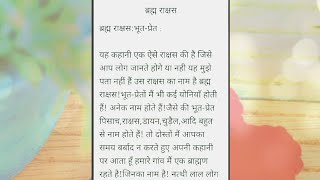 ब्रह्म राक्षस
ब्रह्म राक्षस:भूत-प्रेत :
यह कहानी एक ऐसे राक्षस की है जिसे
आप लोग जानते होगे या नही यह मुझे
पता नहीं हैं उस राक्षस का नाम है ब्रह्म
राक्षस!भूत-प्रेतों में भी कई योनियाँ होती
हैं! अनेक नाम होते हैं!जैसे की भूत-प्रेत
पिसाच,राक्षस,डायन,चुड़ैल,आदि बहुत
से नाम होते हैं! तो दोस्तों में आपका
समय बर्बाद न करते हुए अपनी कहानी
पर आता हूँ हमारे गांव में एक ब्राह्मण
रहते है!जिनका नाम है! नत्थी लाल लोग